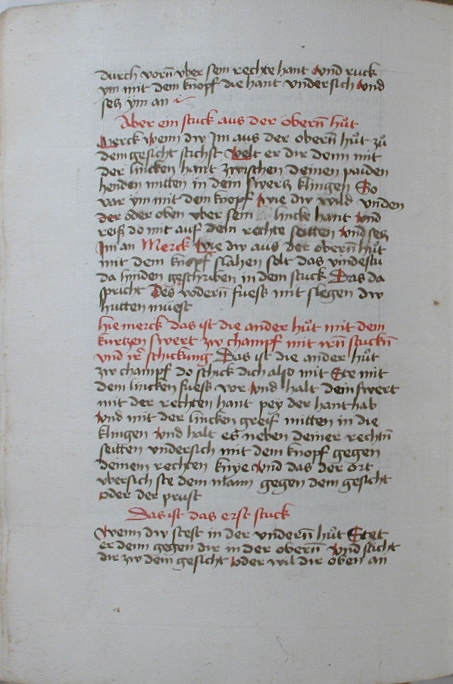 durch vorñ vber sein rechte hant vnd ruck
ym mit dem knopf die hant vndersich vnd
secz ym an
Aber ein stuck aus der oberñ hu̇t
Merck wenn dw Im aus der oberñ hu̇t zü
dem gesicht stichst velt er dir denn mit
der lincken hant zwischen deinen paiden
henden mitten in dein swertz klingen So
var ym mit dem knopf wie dw wild vnden
oder oben vber sein lincke hant vnd
reiß do mit auf dein rechte seitten vnd secz
Im an Merck wie dw aus der oberñ hu̇t
mit dem knopf slahen solt das vindestu
da hynden geschriben in dem stuck Das da
spricht Des voderñ fuess mit slegen dw
hutten muest
hie merck das ist die ander hu̇t mit dem
kurtzen swert zw champf mit irñ stuckñ
vnd ir schickung Das ist die ander hu̇t
zw champf do schick dich also mit Ste mit
dem lincken fuess vor vnd halt dein swert
mit der rechten hant pey der hanthab
vnd mit der lincken greif mitten in die
klingen vnd halt es neben deiner rechtñ
seitten vndersich mit dem knopf gegen
deinem rechten knye vnd das der ort
vbersich ste dem mann gegen dem gesicht
oder der prust
Das ist das erst stuck
Wenn dw stest in der vnderñ hu̇t Stet
er denn gegen dir in der oberñ vnd sticht
dir zw dem gesicht oder wil dir oben an